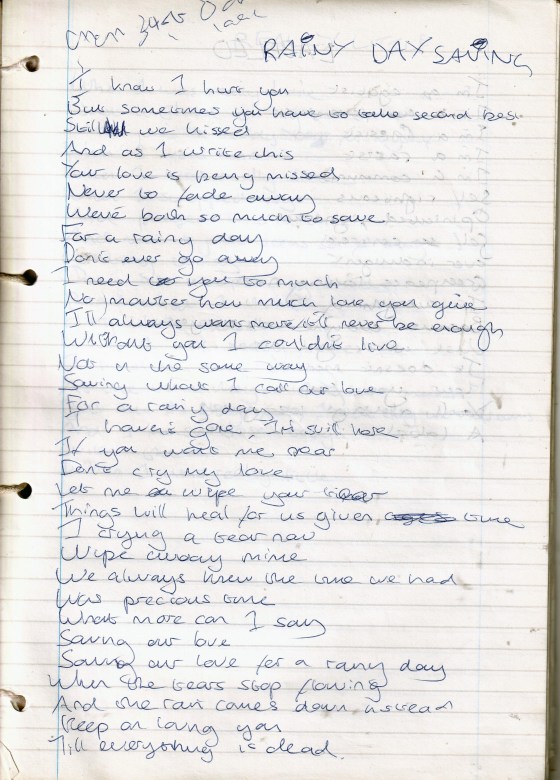 RAINY DAY SAVING
I know I hurt you
But sometimes you have to take second best
Still we kissed
And as I write this
Your love is being missed
Never to fade away
We've both so much to save
For a rainy day
Don't ever go away
I need you to much
No matter how much love you give
I'll always want more it'll never be enough
Without you I couldn't live
Not in the same way
Saving what I call our love
For a rainy day
I haven't gone, I'm still here
If you want me near
Don't cry my love
Let me wipe your tear
Things will heal for us given time
I crying a tear now
Wipe away mine
We always knew the time we had
Was precious time
What more can I say
Saving our love
Saving our love for a rainy day
When the tears stop flowing
And the rain comes down instead
Keep on loving you
Till everything is dead.